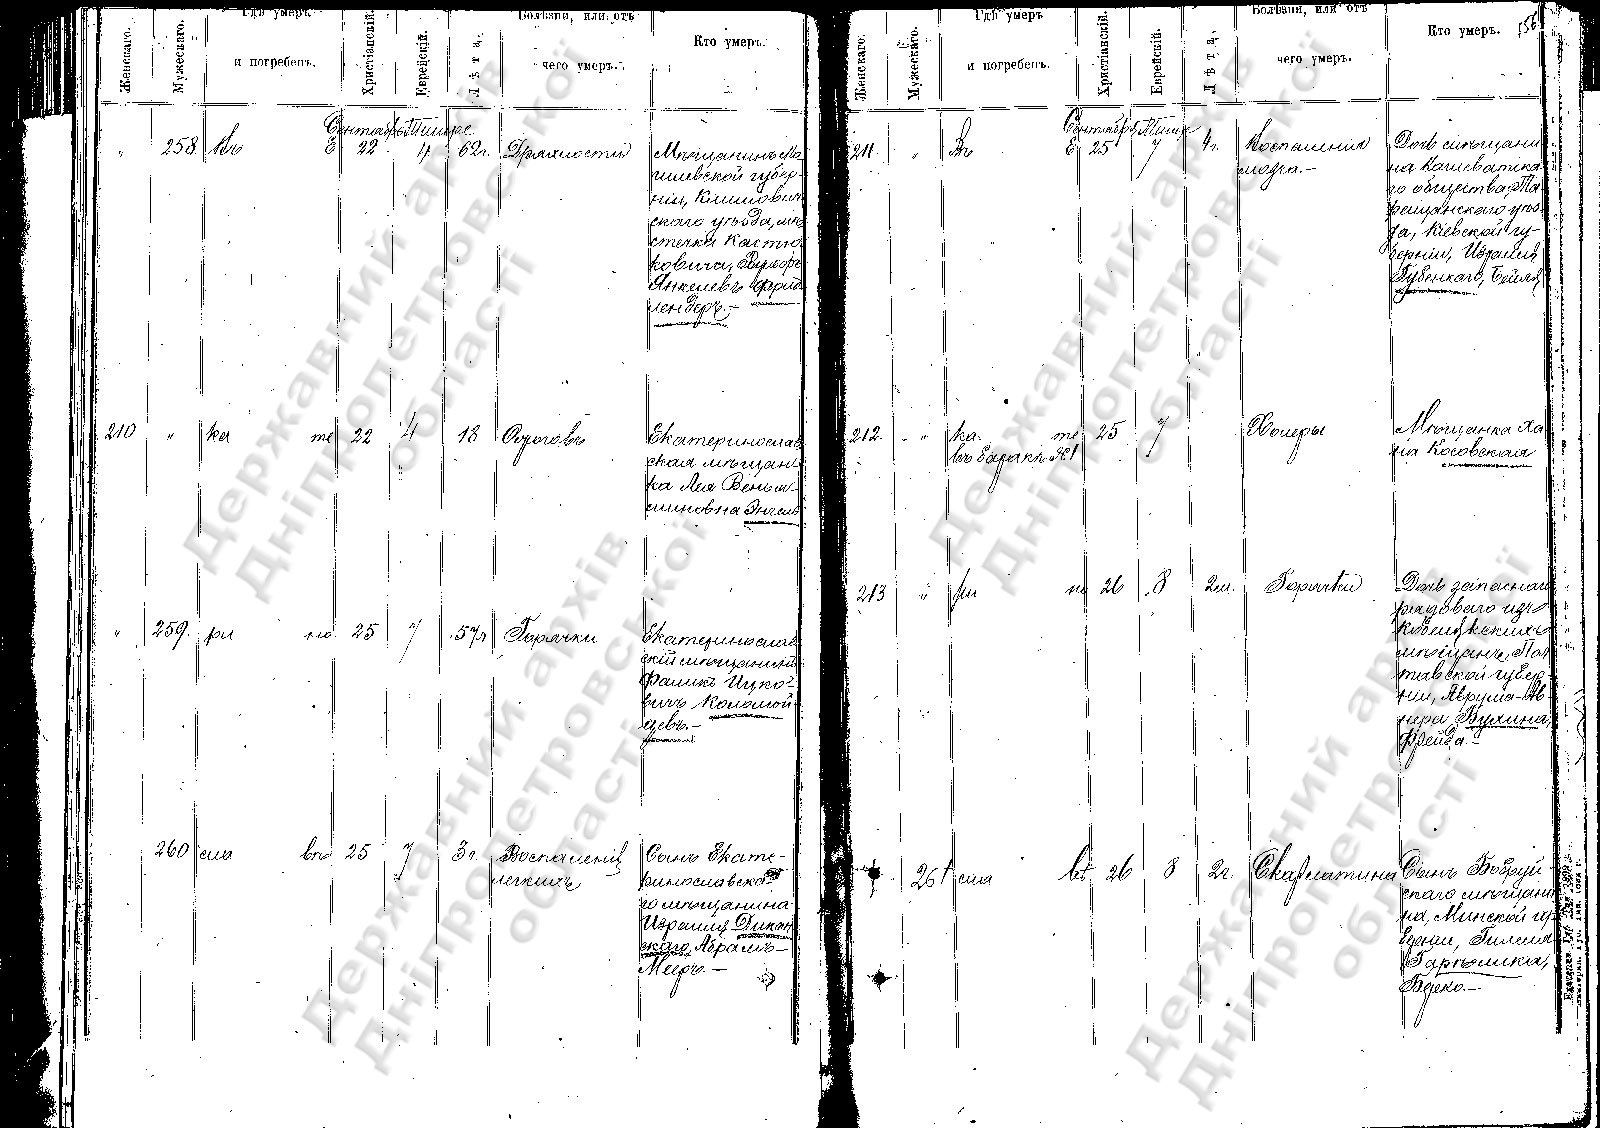 Женскаго.
Мужескаго.
Гдѣ умеръ
и погребенъ.
Христіанскій.
Еврейскій.
Лѣта.
Болѣзни, или отъ
чего умеръ.
Кто умеръ.
Сентябрь Тишре
„ 258 Въ Е 22 4 62 г. Дряхлости
Мѣщанинъ Мо-
гилевской губер-
ніи, Климович-
скаго уѣзда, мѣ-
стечка Костю-
ковичи, Вульфъ
Янкелевъ Фрид-
лендеръ.—
210 „ ка те 22 4 18 Ородовъ
Екатеринослав-
ская мѣщан-
ка Лея Веньям-
миновна Энгель
„ 259. ри но 25 7 57 л Горячки
Екатеринослав-
скій мѣщанинъ
Фаликъ Ицко-
вичъ Коломой-
цевъ.—
260 сла въ 25 7 3 г. Воспаленія
легкихъ
Сынъ Екате-
ринославска-
го мѣщанина
Израиля Дикан-
скаго, Абрамъ-
Мееръ.—
Женскаго.
Мужескаго.
Гдѣ умеръ
и погребенъ.
Христіанскій.
Еврейскій.
Лѣта.
Болѣзни, или отъ
чего умеръ.
Кто умеръ.
156
Сентябрь Тишр
211. „ Въ Е 25 7 4 г. Воспаленія
мозга.—
Дочь мѣщани-
на Кашеватска-
го общества, Та-
ращанскаго уѣз-
да, Кіевской гу-
берніи, Израиля
Губенкаго, Бейля
212. „ ка те 25 7 Холеры
въ баракѣ №1
Мѣщанка Ха-
на Косовская
213 „ ри но 26 8 2 м. Горячки
Дочь запаснаго
рядоваго изъ
Кобеляк­скихъ
мѣщанъ, Пол-
тавской губер-
ніи, Аврума-Аб-
нера Бухина,
Фрейда.—
261 сла въ 26 8 2 г. Скарлатина
Сынъ Бобруй-
скаго мѣщани-
на, Минской гу-
берніи, Гилеля
Гарелика,
Берко.—
Державний архів
Дніпропетровської
області
Державний архів
Дніпропетровської
області
Державний архів
Дніпропетровської
області
Державний архів
Дніпропетровської
області